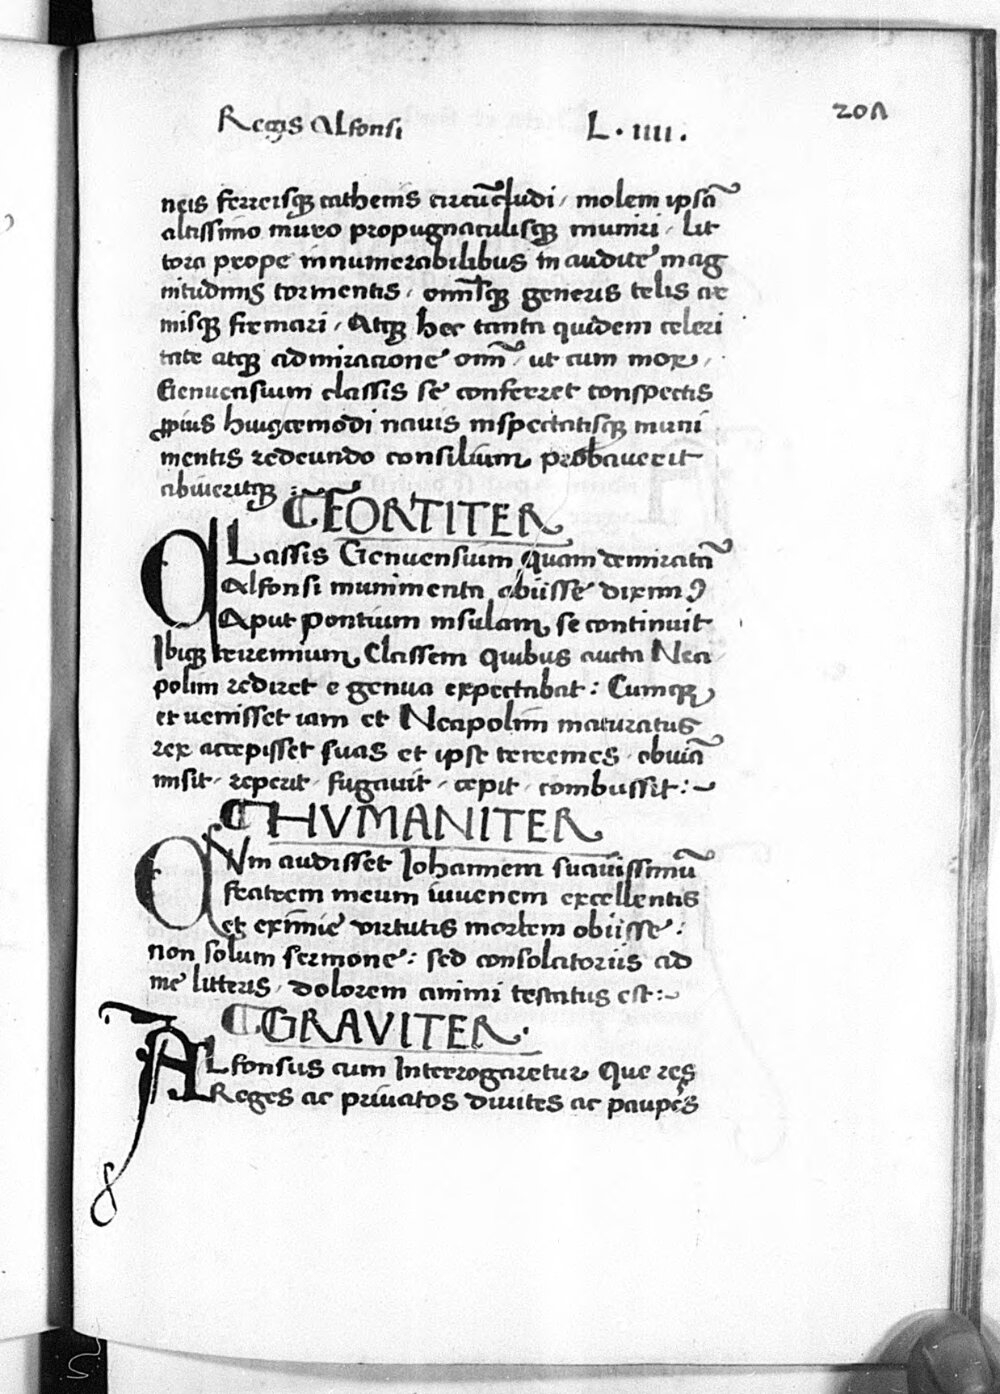 Regis Alfonsi L. iiii. 201
neis ferreisqꝫ cathenis circūcludi / molem ipsā
altissimo muro propugnaculisqꝫ muniri / lit
tora prope innumerabilibus in audite mag
nitudinis tormentis / omīsqꝫ generis telis ar
misqꝫ firmari / Atqꝫ hec tanta quidem celeri
tate atqꝫ admiracione omī / ut cum mox /
Genuensium classis se conferret conspectis
ꝓpius huiꝰcemodi navis inspectatisqꝫ muni
mentis redeundo consilium probaverit
abiveritqꝫ :~
FORTITER
CLassis Genuensium quam demiratā
Alfonsi munimenta obiisse dixim9
Aput pontium insulam se continuit
Ibiqꝫ triremium Classem quibus aucta Nea
polim rediret e genua expectabat : Cumqꝫ
et venisset iam et Neapolim maturatus
rex accepisset suas et ipse triremes obviā
misit / reperit / fugavit / cepit / combussit :~
HVMANITER
CVm audisset Iohannem suavissimū
fratrem meum iuvenem excellentis
et eximie virtutis mortem obiisse :
non solum sermone : sed consolatoriis ad
me litteris / dolorem animi testatus est :~
GRAVITER.
ALfonsus cum Interrogaretur Que res
Reges ac privatos divites ac paupes